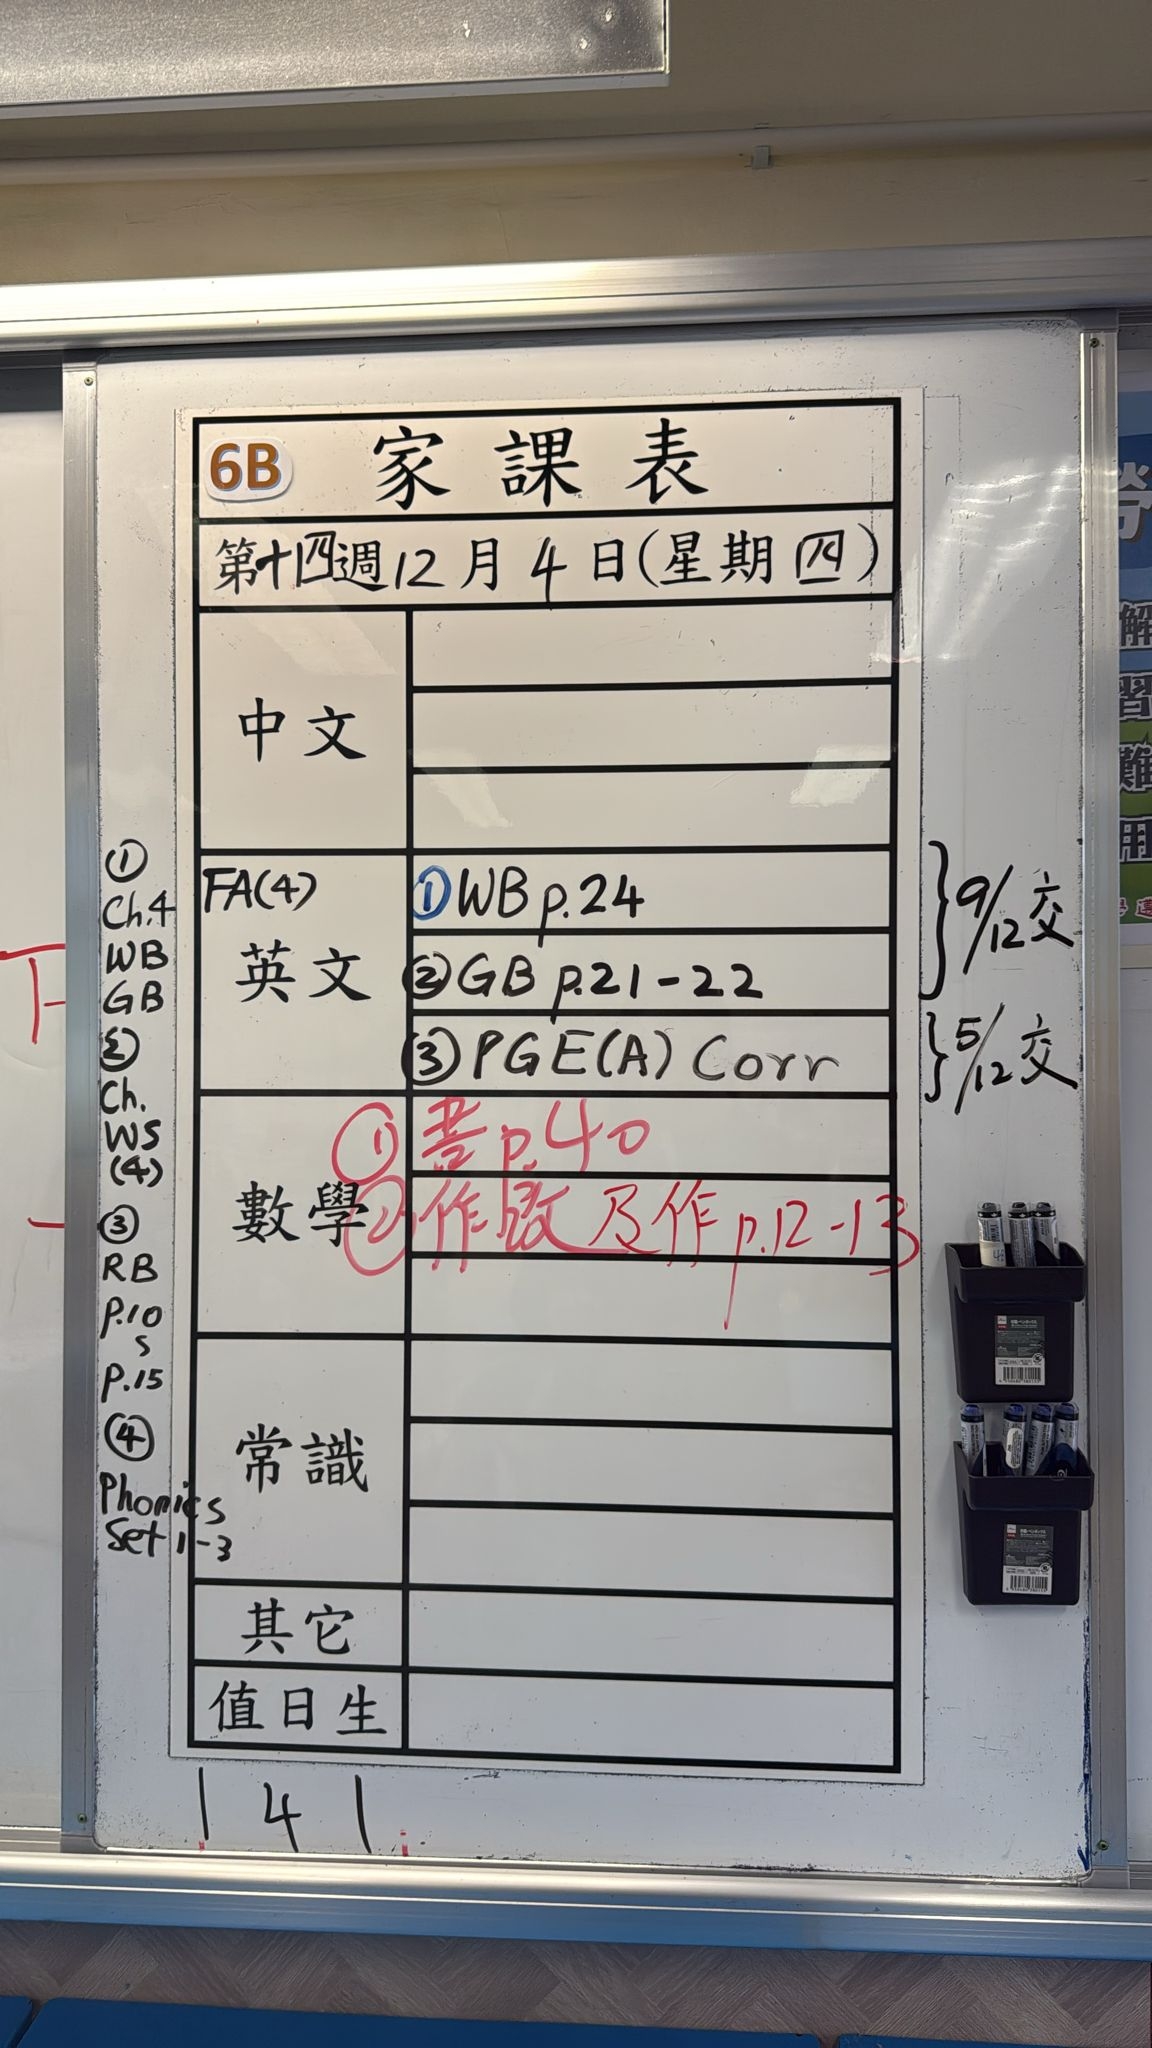 6B 家課表
第十四週12月4日(星期四)
中文
英文
FA(4)
①WB p.24
②GB p.21-22
③PGE(A) Corr
9/12交
5/12交
數學
①書p.40
②作改及作p.12-13
常識
其它
值日生
①
Ch.4
WB
GB
②
Ch.
WS
(4)
③
RB
p.10
s
p.15
④
Phonics
Set 1-3
1 4 1
解
習
難
用